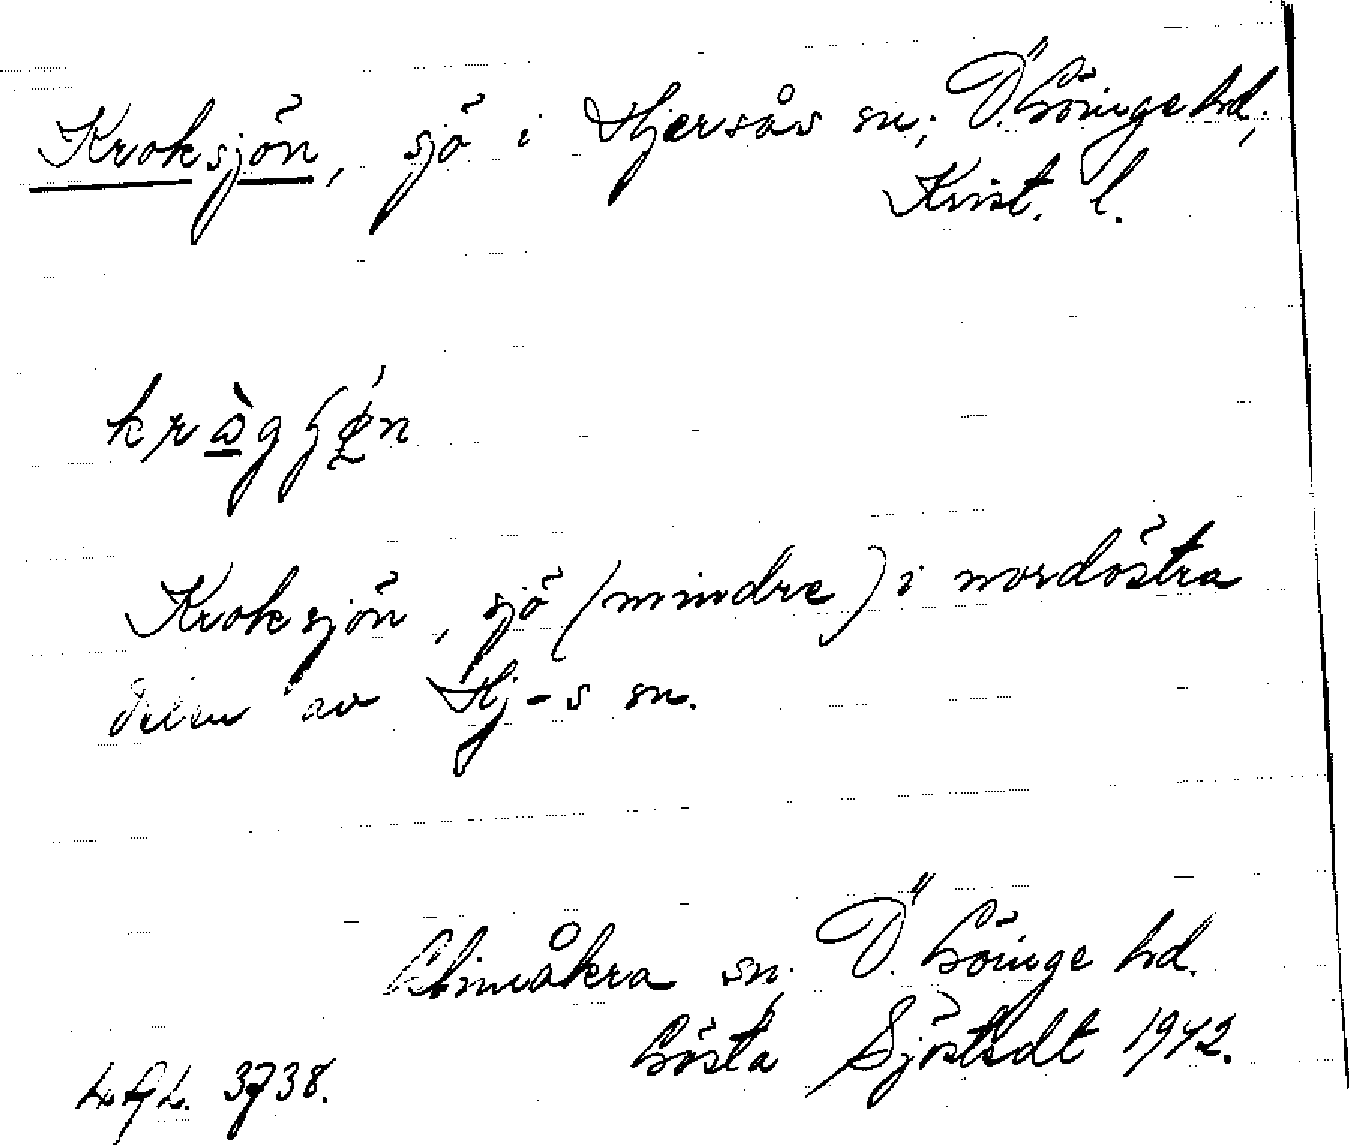 Kroksjön, sjö i Hjersås sn; Ö. Göinge hd,
Krist. l.
Kroksjön, sjö (mindre) i nordöstra
delen av Hj-s sn.
Glimåkra sn. Ö. Göinge hd.
Gösta Sjöstedt 1942.
3738.